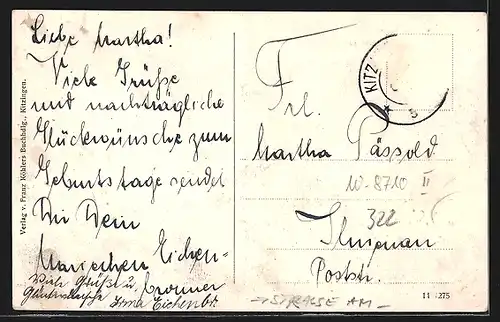 Liebe Martha!
Viele Grüße
und nachträgliche
Glückwünsche zum
Geburtstage sendet
Dir Dein
Mariechen Eichen-
bronner
Viele Grüße u.
Glückwünsche Irma Eichenbr.
Verlag v. Franz Köhlers Buchhdlg., Kitzingen.
KITZ
Frl.
Martha Pässold
10-8710 II
322
Ilmenau
Poststr.
STRASSE AM
275